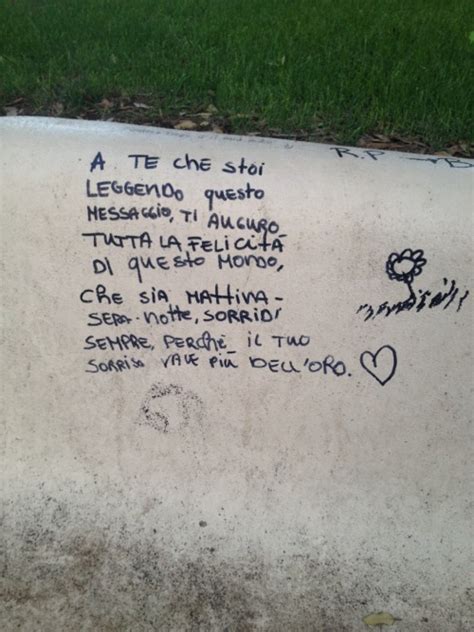 R.P
A TE che stai
LEGGENDO questo
MESSAGGIO, TI AUGURO
TUTTA LA FELICITÀ
DI questo MONDO,
che sia MATTINA-
SERA-Notte, SORRIDI
SEMPRE, PERCHÈ il TUO
SORRISO VALE PIÙ DELL'ORO.